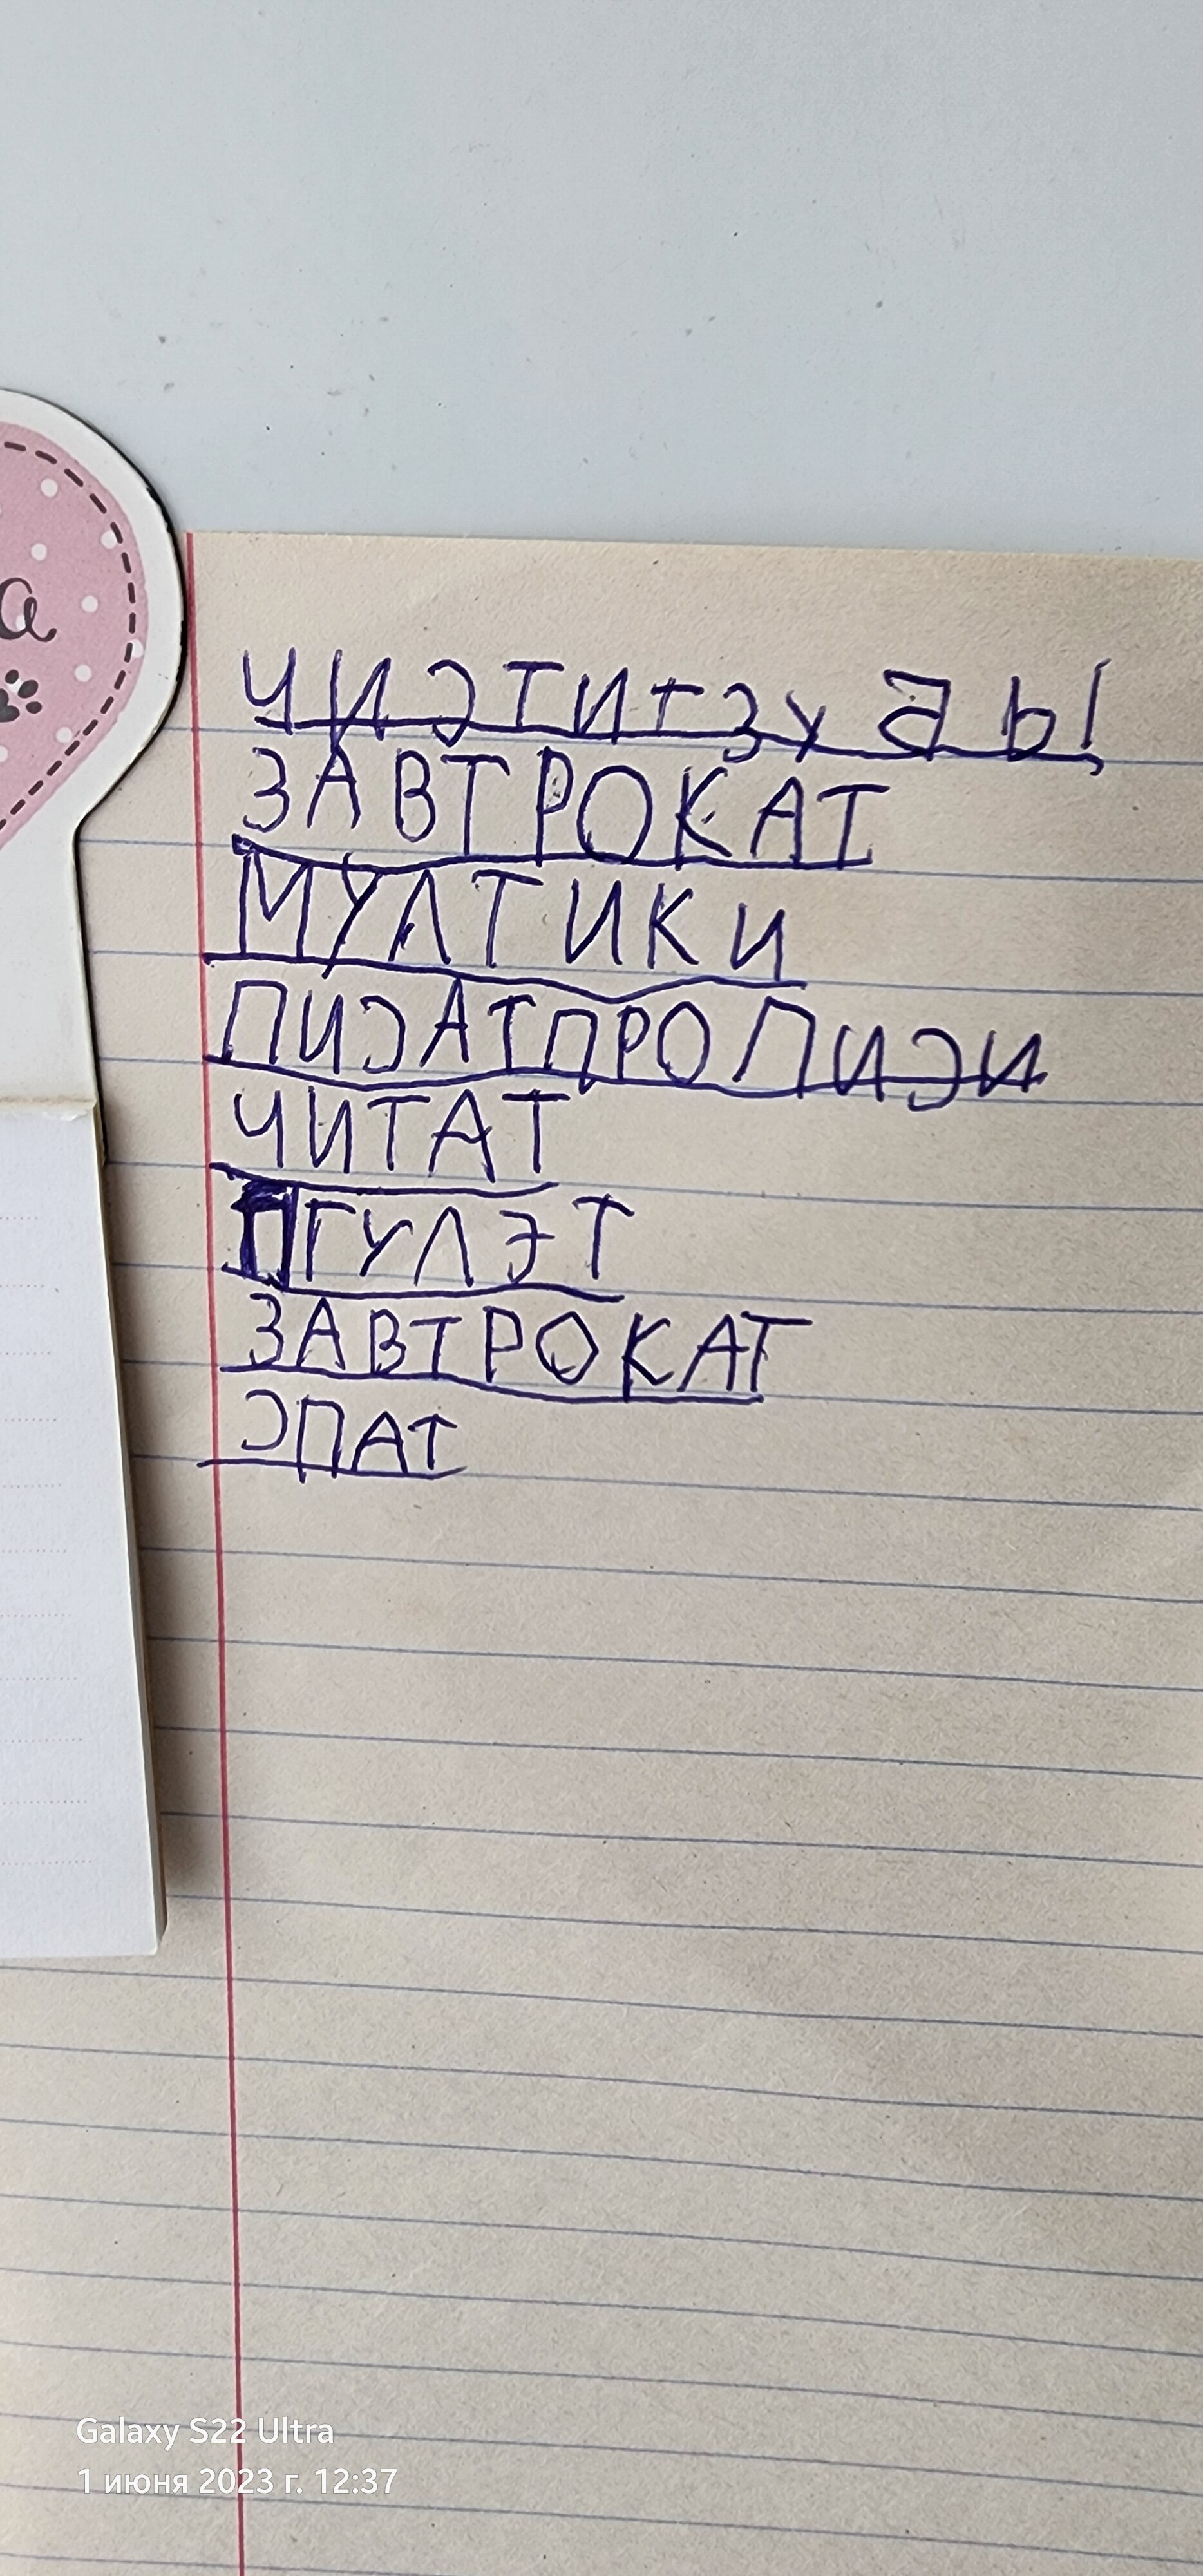 а
ЧИЭТИТЗУБЫ
ЗАВТРОКАТ
МУЛТИКИ
ПИСАТПРОПИСИ
ЧИТАТ
ГУЛЭТ
ЗАВТРОКАТ
СПАТ
Galaxy S22 Ultra
1 июня 2023 г. 12:37